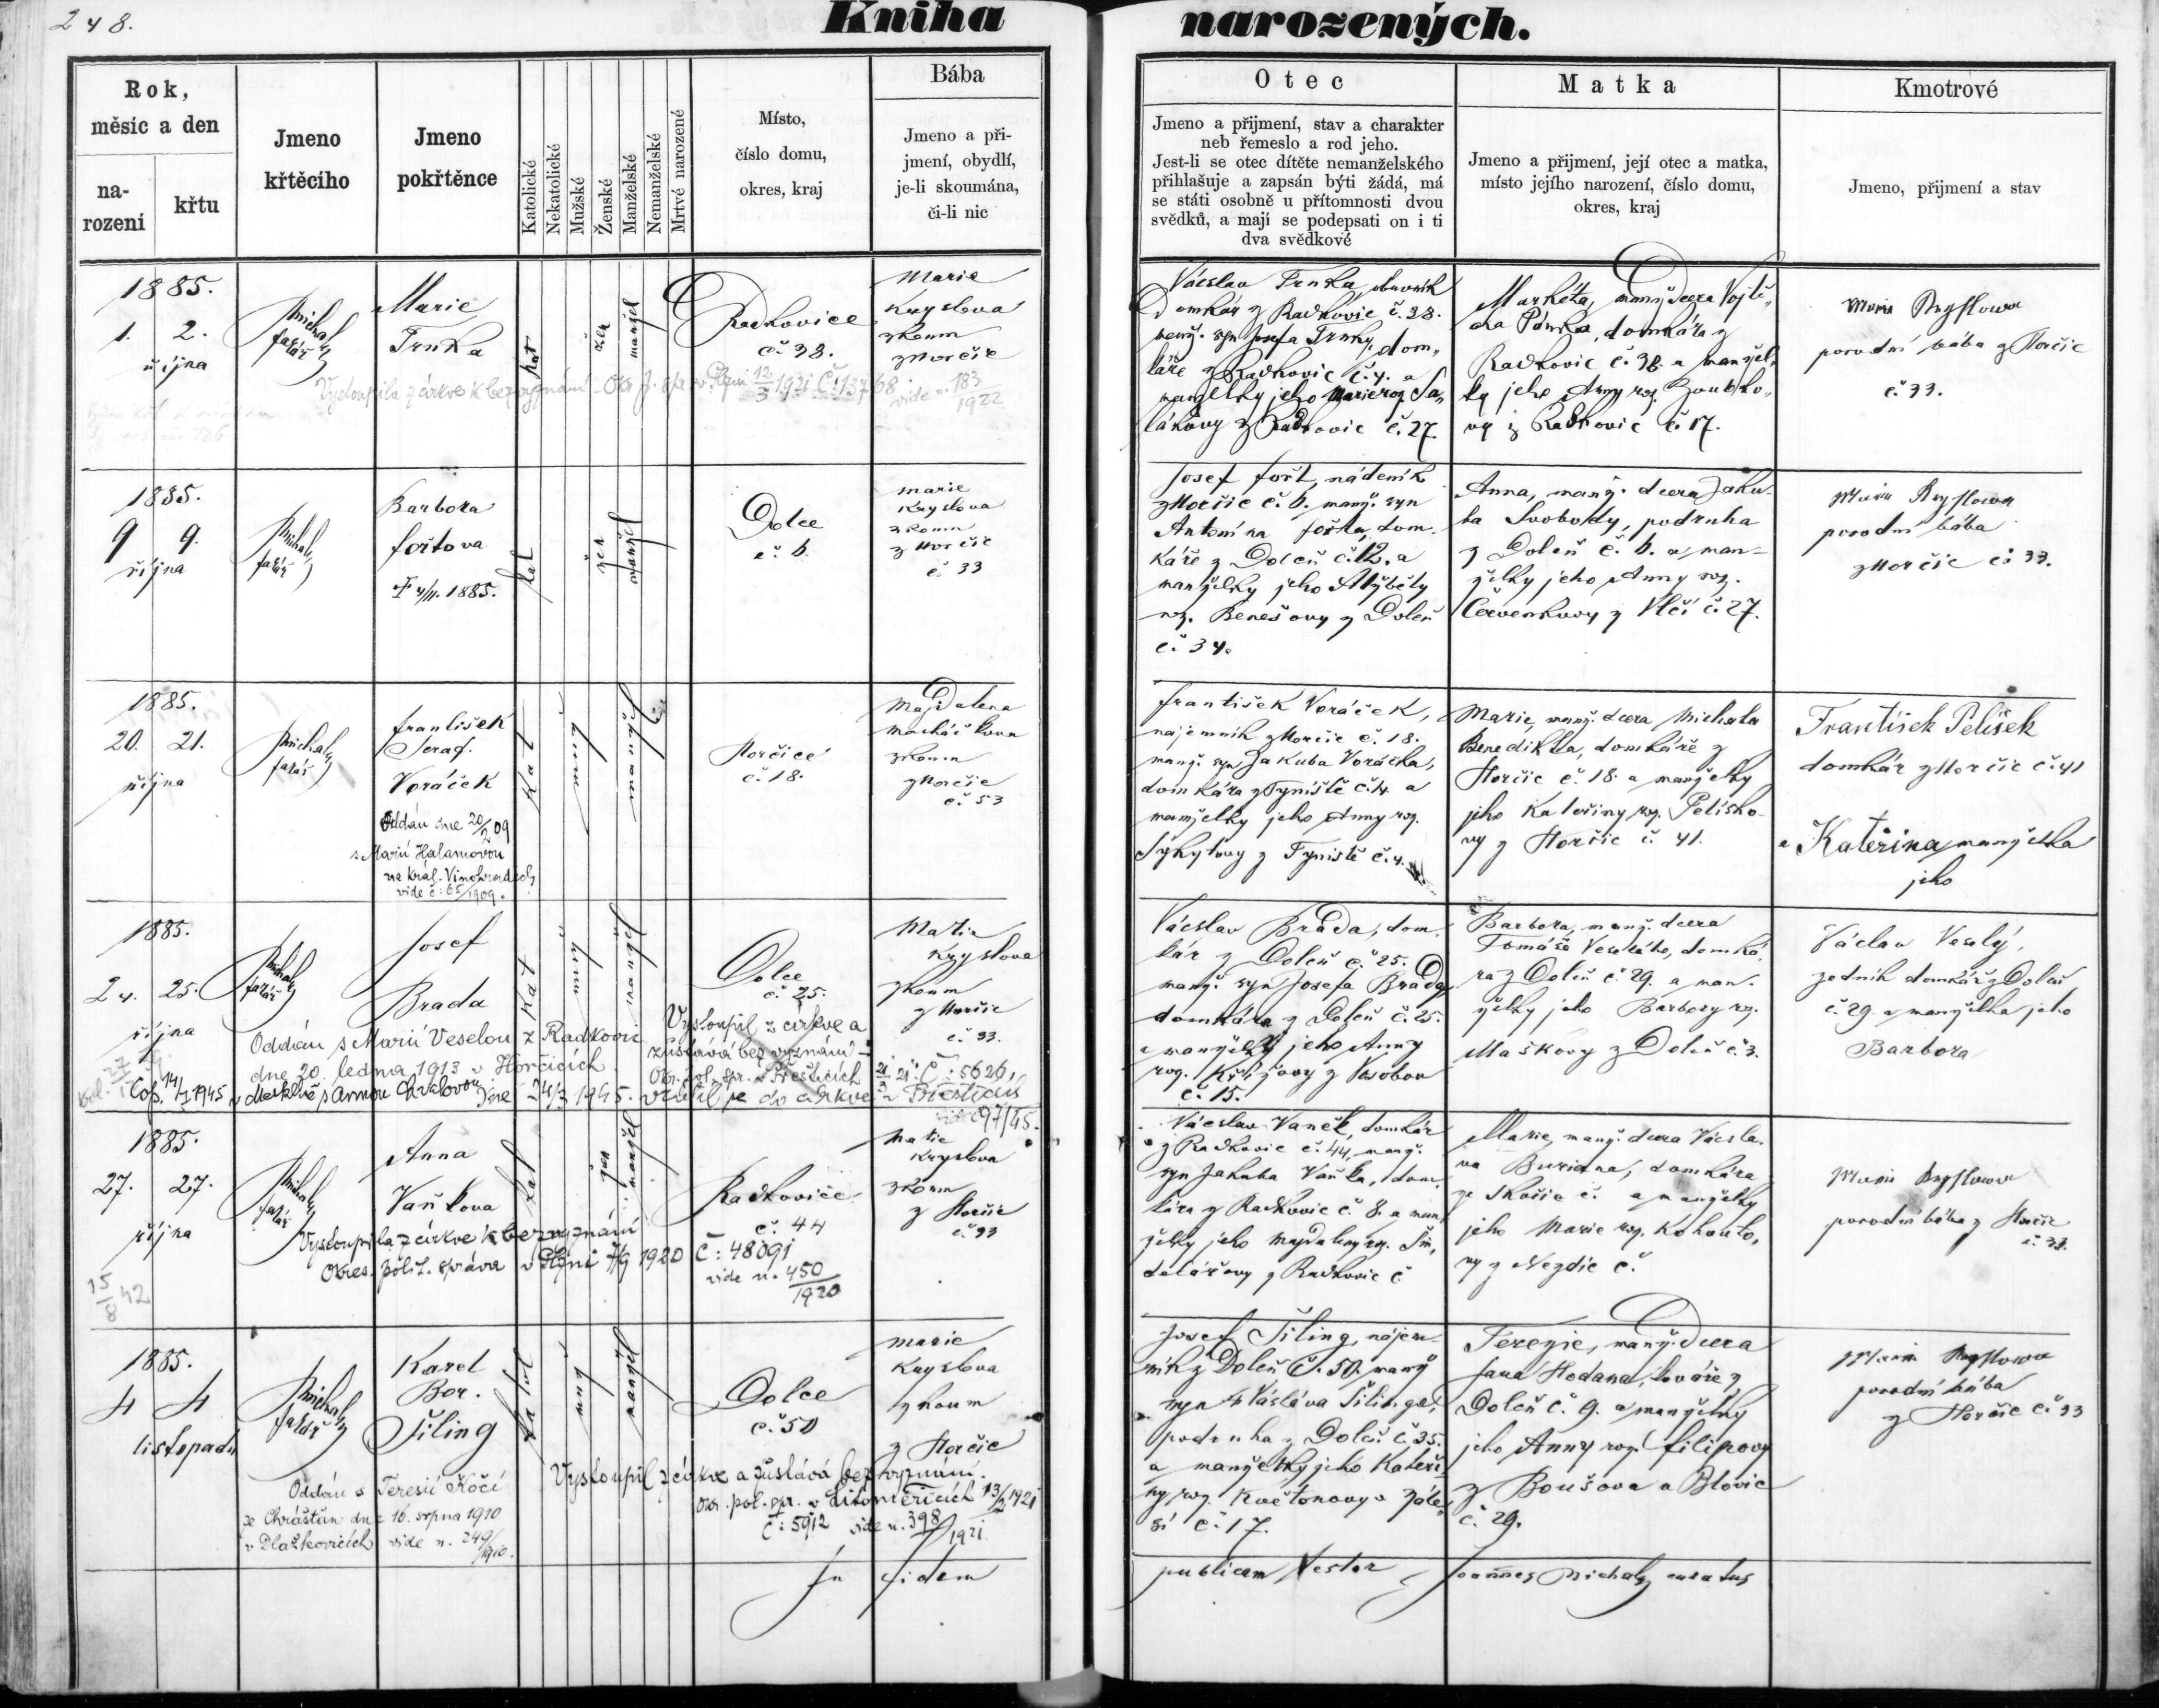 248.
Kniha narozených.
Rok,
měsíc a den
na-
rození
křtu
Jmeno
křtěcího
Jmeno
pokřtěnce
Katolické
Nekatolické
Mužské
Ženské
Manželské
Nemanželské
Mrtvé narozené
Místo,
číslo domu,
okres, kraj
Bába
Jmeno a při-
jmení, obydlí,
je-li skoumána,
či-li nic
Otec
Jmeno a přijmení, stav a charakter
neb řemeslo a rod jeho.
Jest-li se otec dítěte nemanželského
přihlašuje a zapsán býti žádá, má
se státi osobně u přítomnosti dvou
svědků, a mají se podepsati on i ti
dva svědkové
Matka
Jmeno a přijmení, její otec a matka,
místo jejího narození, číslo domu,
okres, kraj
Kmotrové
Jmeno, přijmení a stav
1885.
1. 2.
října
Michal
farář
Marie
Trnka
kat
žen
manžel
Radkovice
č. 38.
Marie
Kryslova
zkoum
z Horčic
Vystoupila z církve k bezvyznání
12/3 1921 č. 13768
vide n. 183/1922
Václav Trnka, obuvník
Domkář z Radkovic č. 38.
manž. syn Josefa Trnky, dom„
káře z Radkovic č. 4. a
manželky jeho Marie roz. Sa„
lákovy z Radkovic č. 27.
Markéta, manž. dcera Vojtě„
cha Pánka, domkáře z
Radkovic č. 38. a manžel„
ky jeho Anny roz. Zoubko„
vy z Radkovic č. 17.
Marie Kryslowa
porodní bába z Horčic
č. 33.
1885.
9 9.
října
Michal
farář
Barbora
Fořtova
† 4/11. 1885.
kat
žen
manžel
Dolce
č. 6.
Marie
Kryslova
zkoum
z Horčic
č. 33
Josef Fořt, nádeník
z Horčic č. 6. manž. syn
Antonína Fořta, dom-
káře z Dolců č. 12. a
manželky jeho Alžběty
roz. Benešovy z Dolců
č. 34.
Anna, manž. dcera Jaku-
ba Svobody, podruha
z Dolců č. 6. a man-
želky jeho Anny roz.
Červenkovy z Vlčí č. 27.
Marie Kryslowa
porodní bába
z Horčic č. 33.
1885.
20. 21.
října
Michal
farář
František
Seraf.
Voráček
Oddán dne 20/2 09
s Marií Halamovou
na Král. Vinohradech
vide č: 65/1909.
kat
muž
manžel
Horčice
č. 18.
Magdalena
Macháčkova
zkoum
z Horčic
č. 53
František Voráček,
nájemník z Horčic č. 18.
manž. syn Jakuba Voráčka,
domkáře z Týniště č. 4. a
manželky jeho Anny roz.
Sýkytovy z Týniště č. 4.
Marie, manž. dcera Michala
Benedikta, domkáře z
Horčic č. 18. a manželky
jeho Kateřiny roz. Pelíško-
vy z Horčic č. 41.
František Pelíšek
domkář z Horčic č. 41
a Kateřina, manželka
jeho
1885.
24. 25.
října
Michal
farář
Josef
Brada
kat
muž
manžel
Dolce
č. 25.
Marie
Kryslova
zkoum
z Horčic
č. 33.
Oddán s Marií Veselou z Radkovic
dne 20. ledna 1913 v Horčicích
Vystoupil z církve a
zůstává bez vyznání -
Okr. pol. spr. v Přešticích 21/3 21. č: 5626.
Cop. 14/7 1945 v Merklíně s Annou Chválovou
Dne 24/3 1945. vrátil se do církve v Přešticích
97/45.
Václav Brada, dom-
kář z Dolců č. 25.
manž. syn Josefa Brady
domkáře z Dolců č. 25.
a manželky jeho Anny
roz. Křížovy z Vosobov
č. 15.
Barbora, manž. dcera
Tomáše Veselého, domká-
ře z Dolců č. 29. a man-
želky jeho Barbory roz.
Maškovy z Dolců č. 3.
Václav Veselý,
zedník domkář z Dolců
č. 29. a manželka jeho
Barbora
1885.
27. 27.
října
Michal
farář
Anna
Vaňkova
kat
žen
manžel
Radkovice
č. 44
Marie
Kryslova
zkoum
z Horčic
č. 33
Vystoupila z církve k bezvyznání
Okres. polit. správa v Plzni 7/9 1920 č: 48091
vide n. 450/1920
15/8 42
Václav Vaněk, domkář
z Radkovic č. 44, manž.
syn Jakuba Vaňka, dom-
káře z Radkovic č. 8. a man
želky jeho Magdaleny roz. Šin„
delářovy z Radkovic č
Marie, manž. dcera Václa-
va Buriana, domkáře
ze Skočic č. a manželky
jeho Marie roz. Kohouto„
vy z Nezdic č.
Marie Kryslowa
porodní bába z Horčic
č. 33.
1885.
4 4
listopadu
Michal
farář
Karel
Bor.
Šiling
katol
muž
manžel
Dolce
č. 50
Marie
Kryslova
zkoum
z Horčic
Oddán s Teresií Kočí
ze Chrášťan dne 16. srpna 1910
v Dlažkovicích vide n. 249/1910.
Vystoupil z církve a zůstává bez vyznání.
Okr. pol. spr. v Litoměřicích 13/2 1921
č: 5912 vide n. 398/1921.
Josef Šiling, nájem-
ník z Dolců č. 50. manž
syn Václava Šilinga,
podruha z Dolců č. 35.
a manželky jeho Kateři-
ny roz. Květonovy z Zále„
sí č. 17.
Terezie, manž. dcera
Jana Hodana, kováře z
Dolců č. 9. a manželky
jeho Anny roz. Filipovy
z Boušova a Blovic
č. 29.
Marie Kryslowa
porodní bába
z Horčic č. 33
In fidem publicam Nestor Joannes Michal curatus